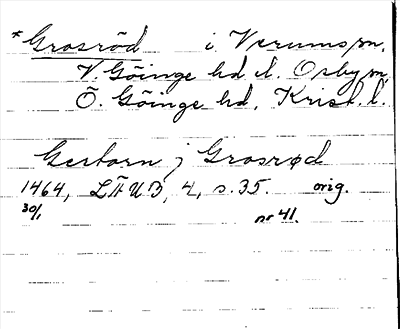 *Grosröd i Verums sn,
V. Göinge hd el. Osby sn,
Ö. Göinge hd, Krist. l.
Gertorn j Grosrød
1464, LÄUB, 4, s. 35. orig.
30/1 nr 41.